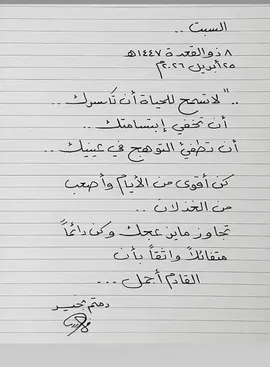 السبت ..
٨ ذو القعدة ١٤٤٧هـ
٢٥ أبريل ٢٠٢٦م
.. " لا تسمح للحياة أن تكسرك ..
أن تخفي إبتسامتك ..
أن تطفئ التوهج في عينيك ..
كن أقوى من الأيام وأصعب
من الخذلان ..
تجاوز ما يزعجك وكن دائماً
متفائلاً واثقاً بأن
القادم أجمل ...
دمتم بخير